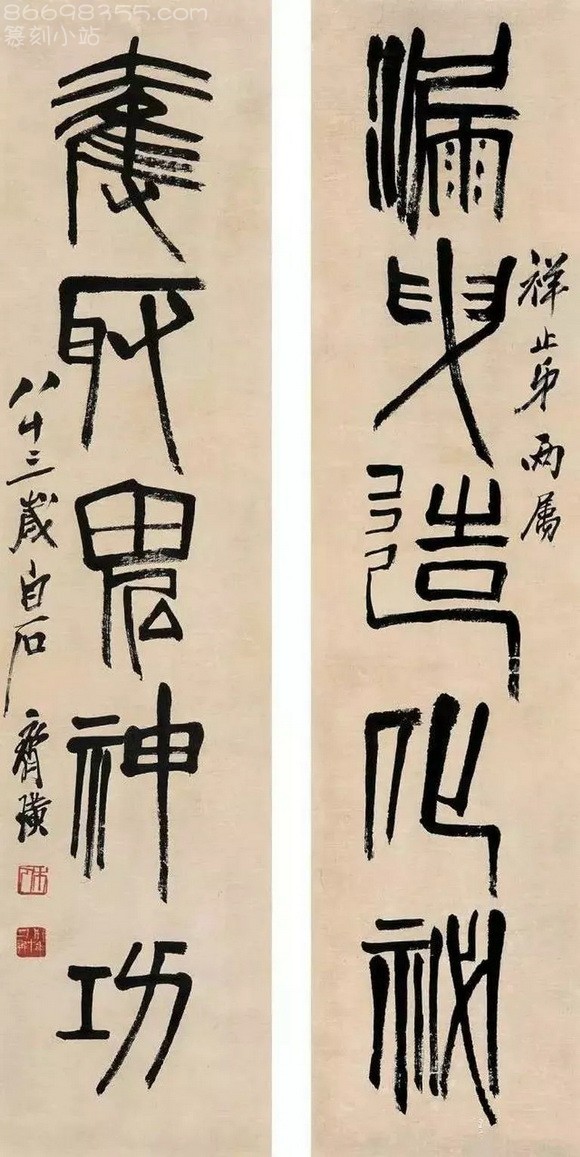 86698355.com
篆刻小站
祥止弟两属
漏曳造化祕
奪取鬼神功
八十三歲白石齊璜